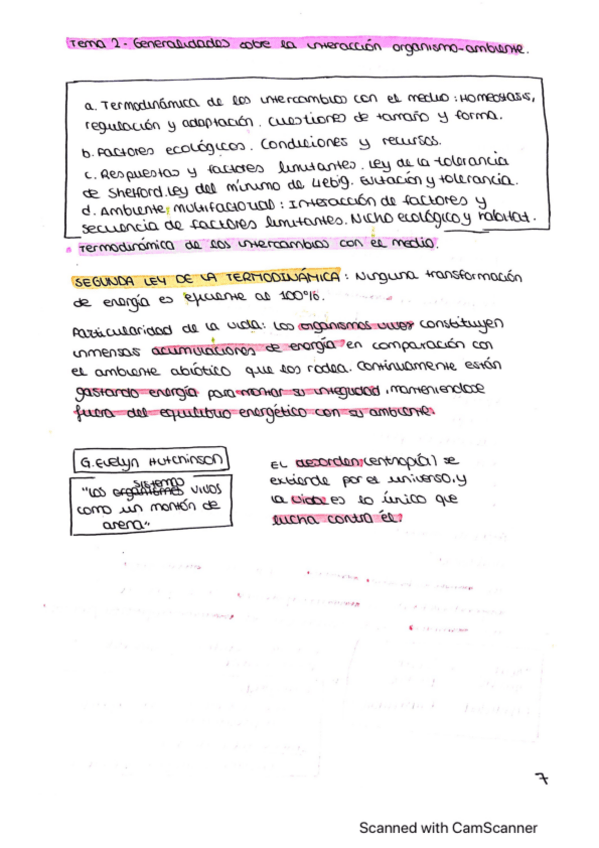 Tema 2. Generalidades sobre la interacción organismo-ambiente.
a. Termodinámica de los intercambios con el medio: Homeostasis,
regulación y adaptación. Cuestiones de tamaño y forma.
b. Factores ecológicos. Condiciones y recursos.
c. Respuestas y factores limitantes. Ley de la tolerancia
de Shelford. Ley del mínimo de Liebig. Evitación y tolerancia.
d. Ambiente multifactorial: Interacción de factores y
secuencia de factores limitantes. Nicho ecológico y hábitat.
Termodinámica de los intercambios con el medio.
SEGUNDA LEY DE LA TERMODINÁMICA: Ninguna transformación
de energía es eficiente al 100%.
Particularidad de la vida: Los organismos vivos constituyen
inmensas acumulaciones de energía en comparación con
el ambiente abiótico que los rodea. Continuamente están
gastando energía para mantener su integridad, manteniéndose
fuera del equilibrio energético con su ambiente.
G. Evelyn Hutchinson
sistemas
"Los organismos vivos
como un montón de
arena"
EL desorden (entropía) se
extiende por el universo, y
la vida es lo único que
lucha contra él.
7
Scanned with CamScanner